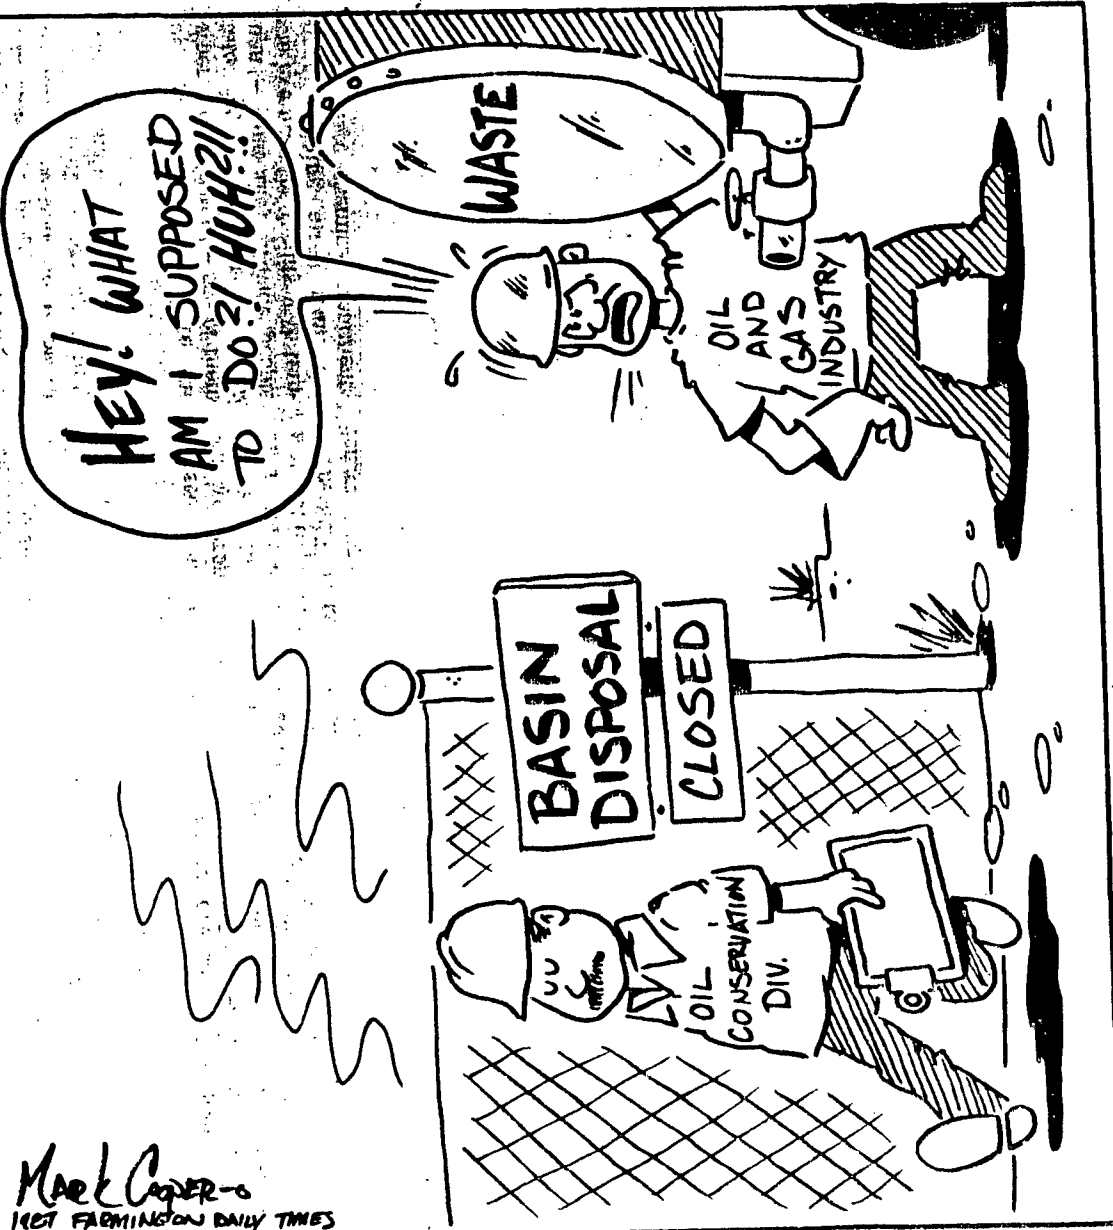 HEY! WHAT
AM I SUPPOSED
TO DO?! HUH?!!
WASTE
OIL
AND
GAS
INDUSTRY
BASIN
DISPOSAL
CLOSED
OIL
CONSERVATION
DIV.
MARK COOPER
1987 FARMINGTON DAILY TIMES